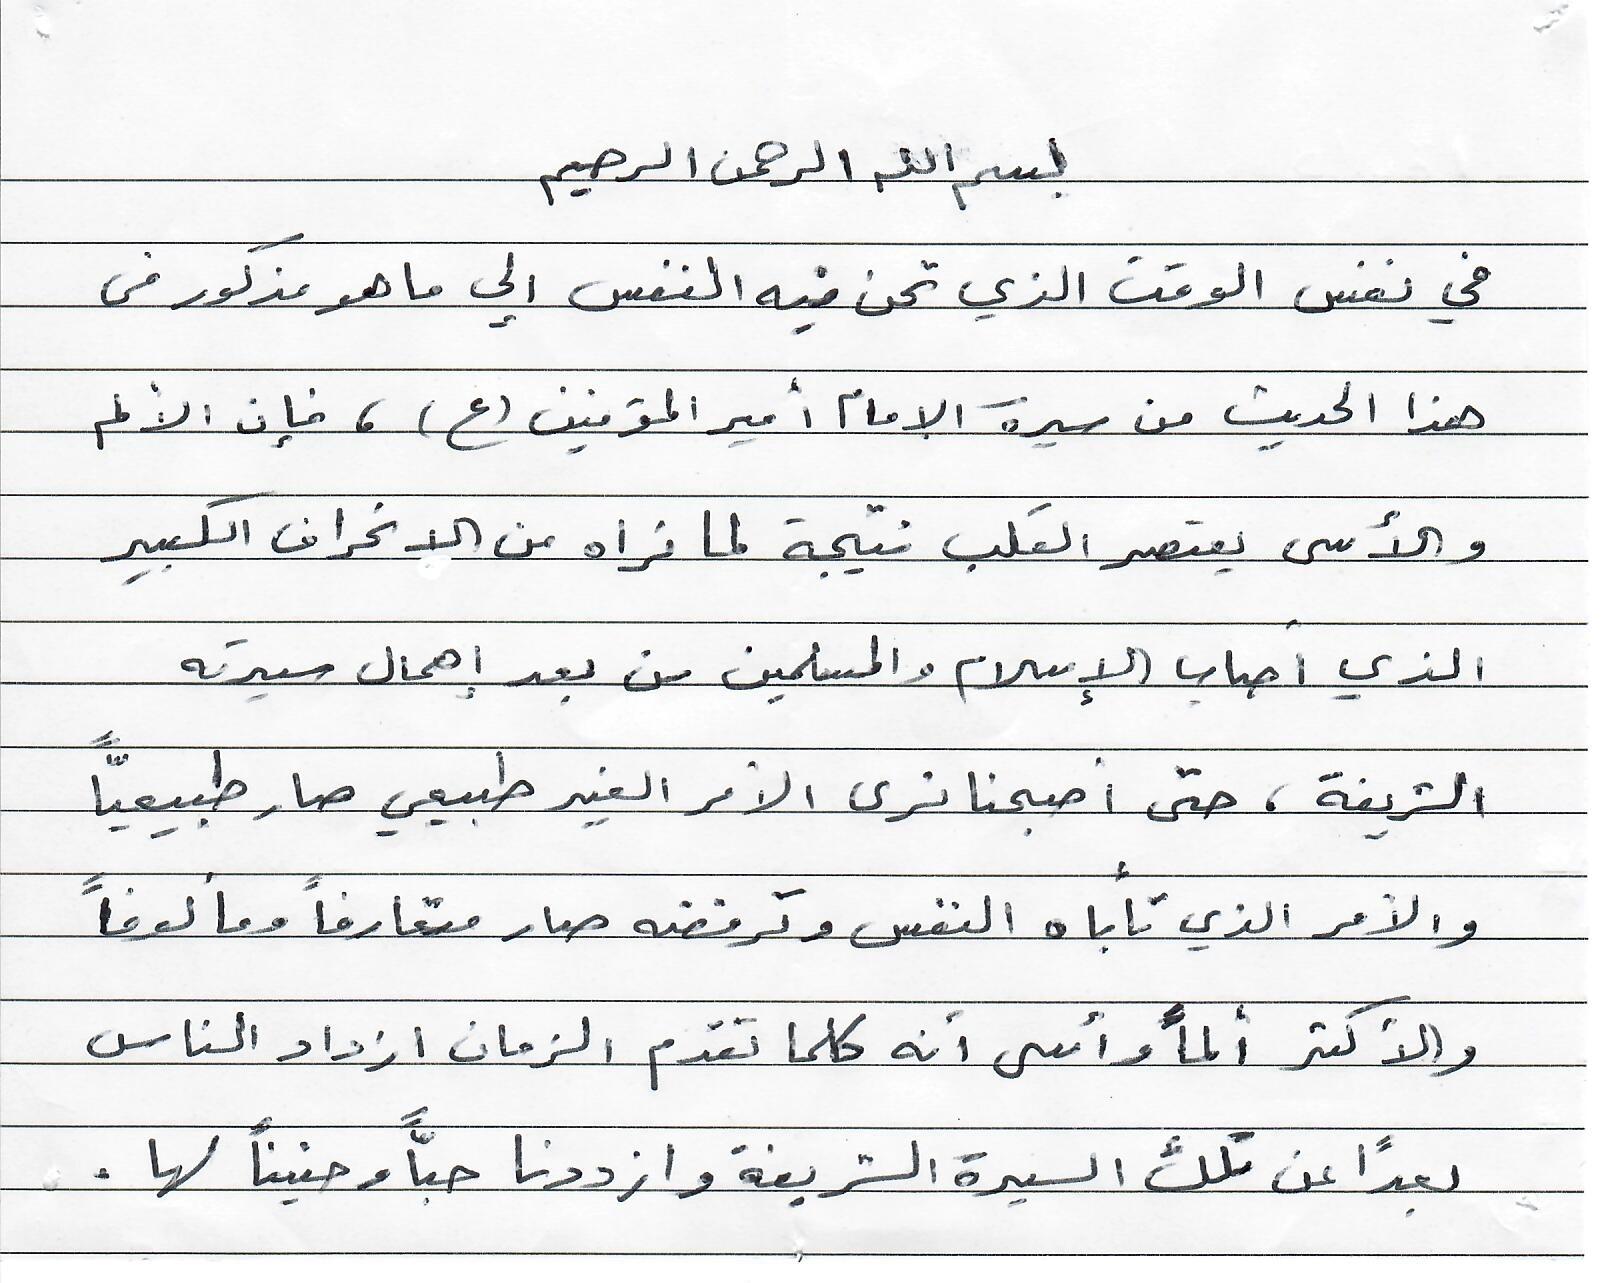 بسم الله الرحمن الرحيم
في نفس الوقت الذي تحن فيه النفس إلي ما هو مذكور في
هذا الحديث من سيرة الإمام أمير المؤمنين (ع) ، فإن الألم
والأسى يعتصر القلب نتيجة لما نراه من الانحراف الكبير
الذي أصاب الإسلام والمسلمين من بعد إهمال سيرته
الشريفة ، حتى أصبحنا نرى الأمر الغير طبيعي صار طبيعيًّا
والأمر الذي تأباه النفس وترفضه صار متعارفاً ومألوفاً
والأكثر ألماً وأسى أنه كلما تقدم الزمان ازداد الناس
بعدًا عن تلك السيرة الشريفة وازددنا حبًّا وحنيناً لها .